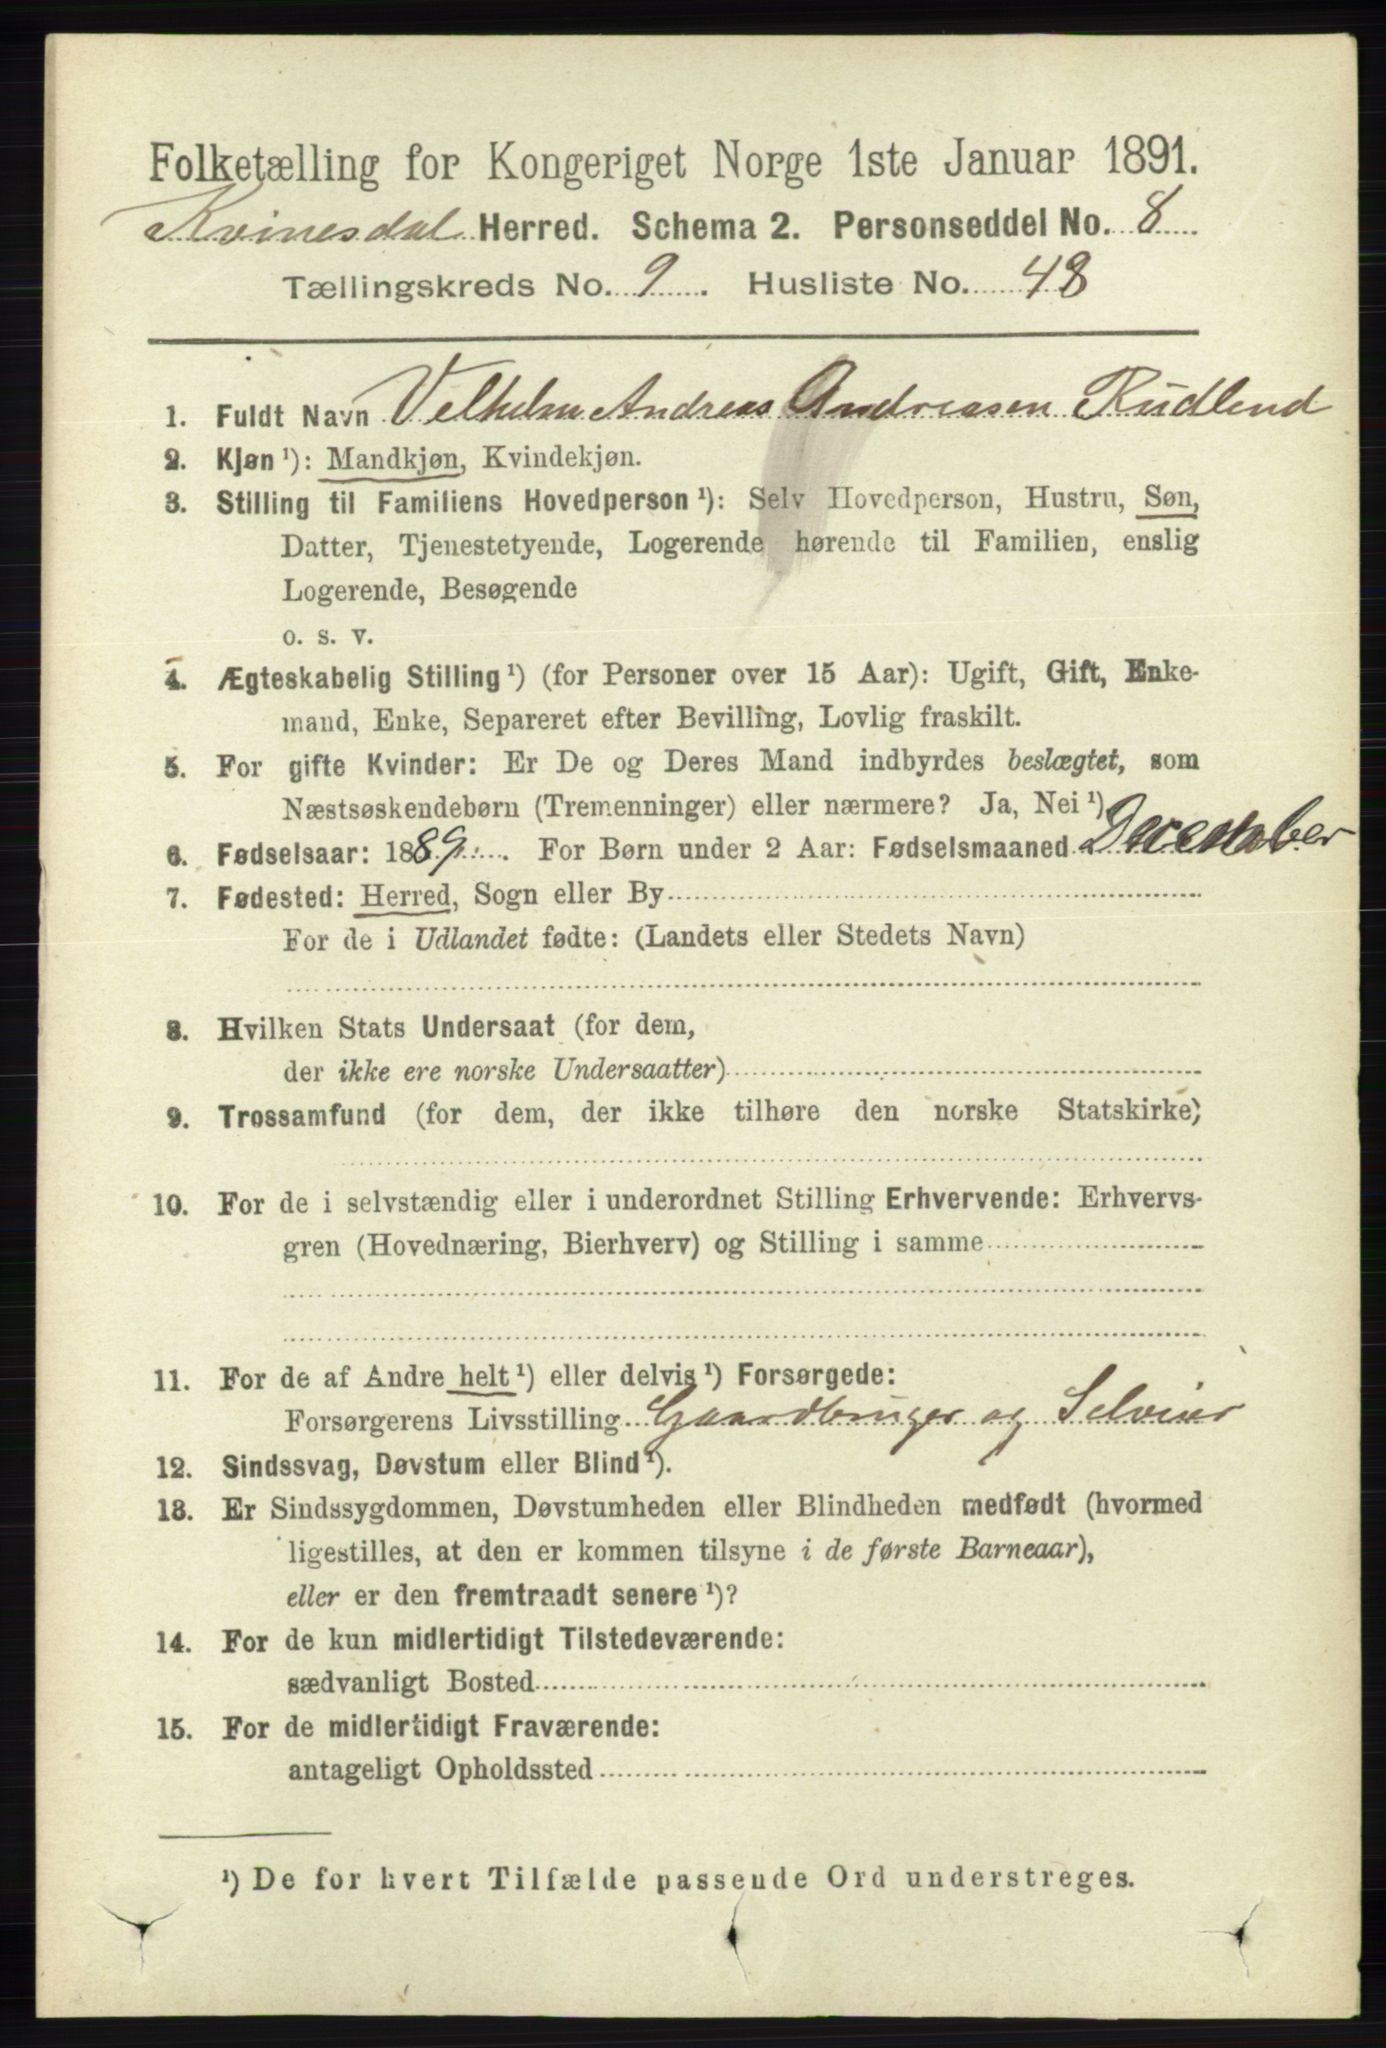 Folketælling for Kongeriget Norge 1ste Januar 1891.
Kvinesdal Herred. Schema 2. Personseddel No. 8
Tællingskreds No. 9. Husliste No. 48
1. Fuldt Navn Velhelm Andreas Andreasen Rudlend
2. Kjøn ¹): Mandkjøn, Kvindekjøn.
3. Stilling til Familiens Hovedperson ¹): Selv Hovedperson, Hustru, Søn,
Datter, Tjenestetyende, Logerende hørende til Familien, enslig
Logerende, Besøgende
o. s. v.
4. Ægteskabelig Stilling ¹) (for Personer over 15 Aar): Ugift, Gift, Enke-
mand, Enke, Separeret efter Bevilling, Lovlig fraskilt.
5. For gifte Kvinder: Er De og Deres Mand indbyrdes beslægtet, som
Næstsøskendebørn (Tremenninger) eller nærmere? Ja, Nei ¹)
6. Fødselsaar: 1889. For Børn under 2 Aar: Fødselsmaaned December
7. Fødested: Herred, Sogn eller By
For de i Udlandet fødte: (Landets eller Stedets Navn)
8. Hvilken Stats Undersaat (for dem,
der ikke ere norske Undersaatter)
9. Trossamfund (for dem, der ikke tilhøre den norske Statskirke)
10. For de i selvstændig eller i underordnet Stilling Erhvervende: Erhvervs-
gren (Hovednæring, Bierhverv) og Stilling i samme
11. For de af Andre helt ¹) eller delvis ¹) Forsørgede:
Forsørgerens Livsstilling Gaardbruger og Selveier
12. Sindssvag, Døvstum eller Blind ¹).
13. Er Sindssygdommen, Døvstumheden eller Blindheden medfødt (hvormed
ligestilles, at den er kommen tilsyne i de første Barneaar),
eller er den fremtraadt senere ¹)?
14. For de kun midlertidigt Tilstedeværende:
sædvanligt Bosted
15. For de midlertidigt Fraværende:
antageligt Opholdssted
¹) De for hvert Tilfælde passende Ord understreges.